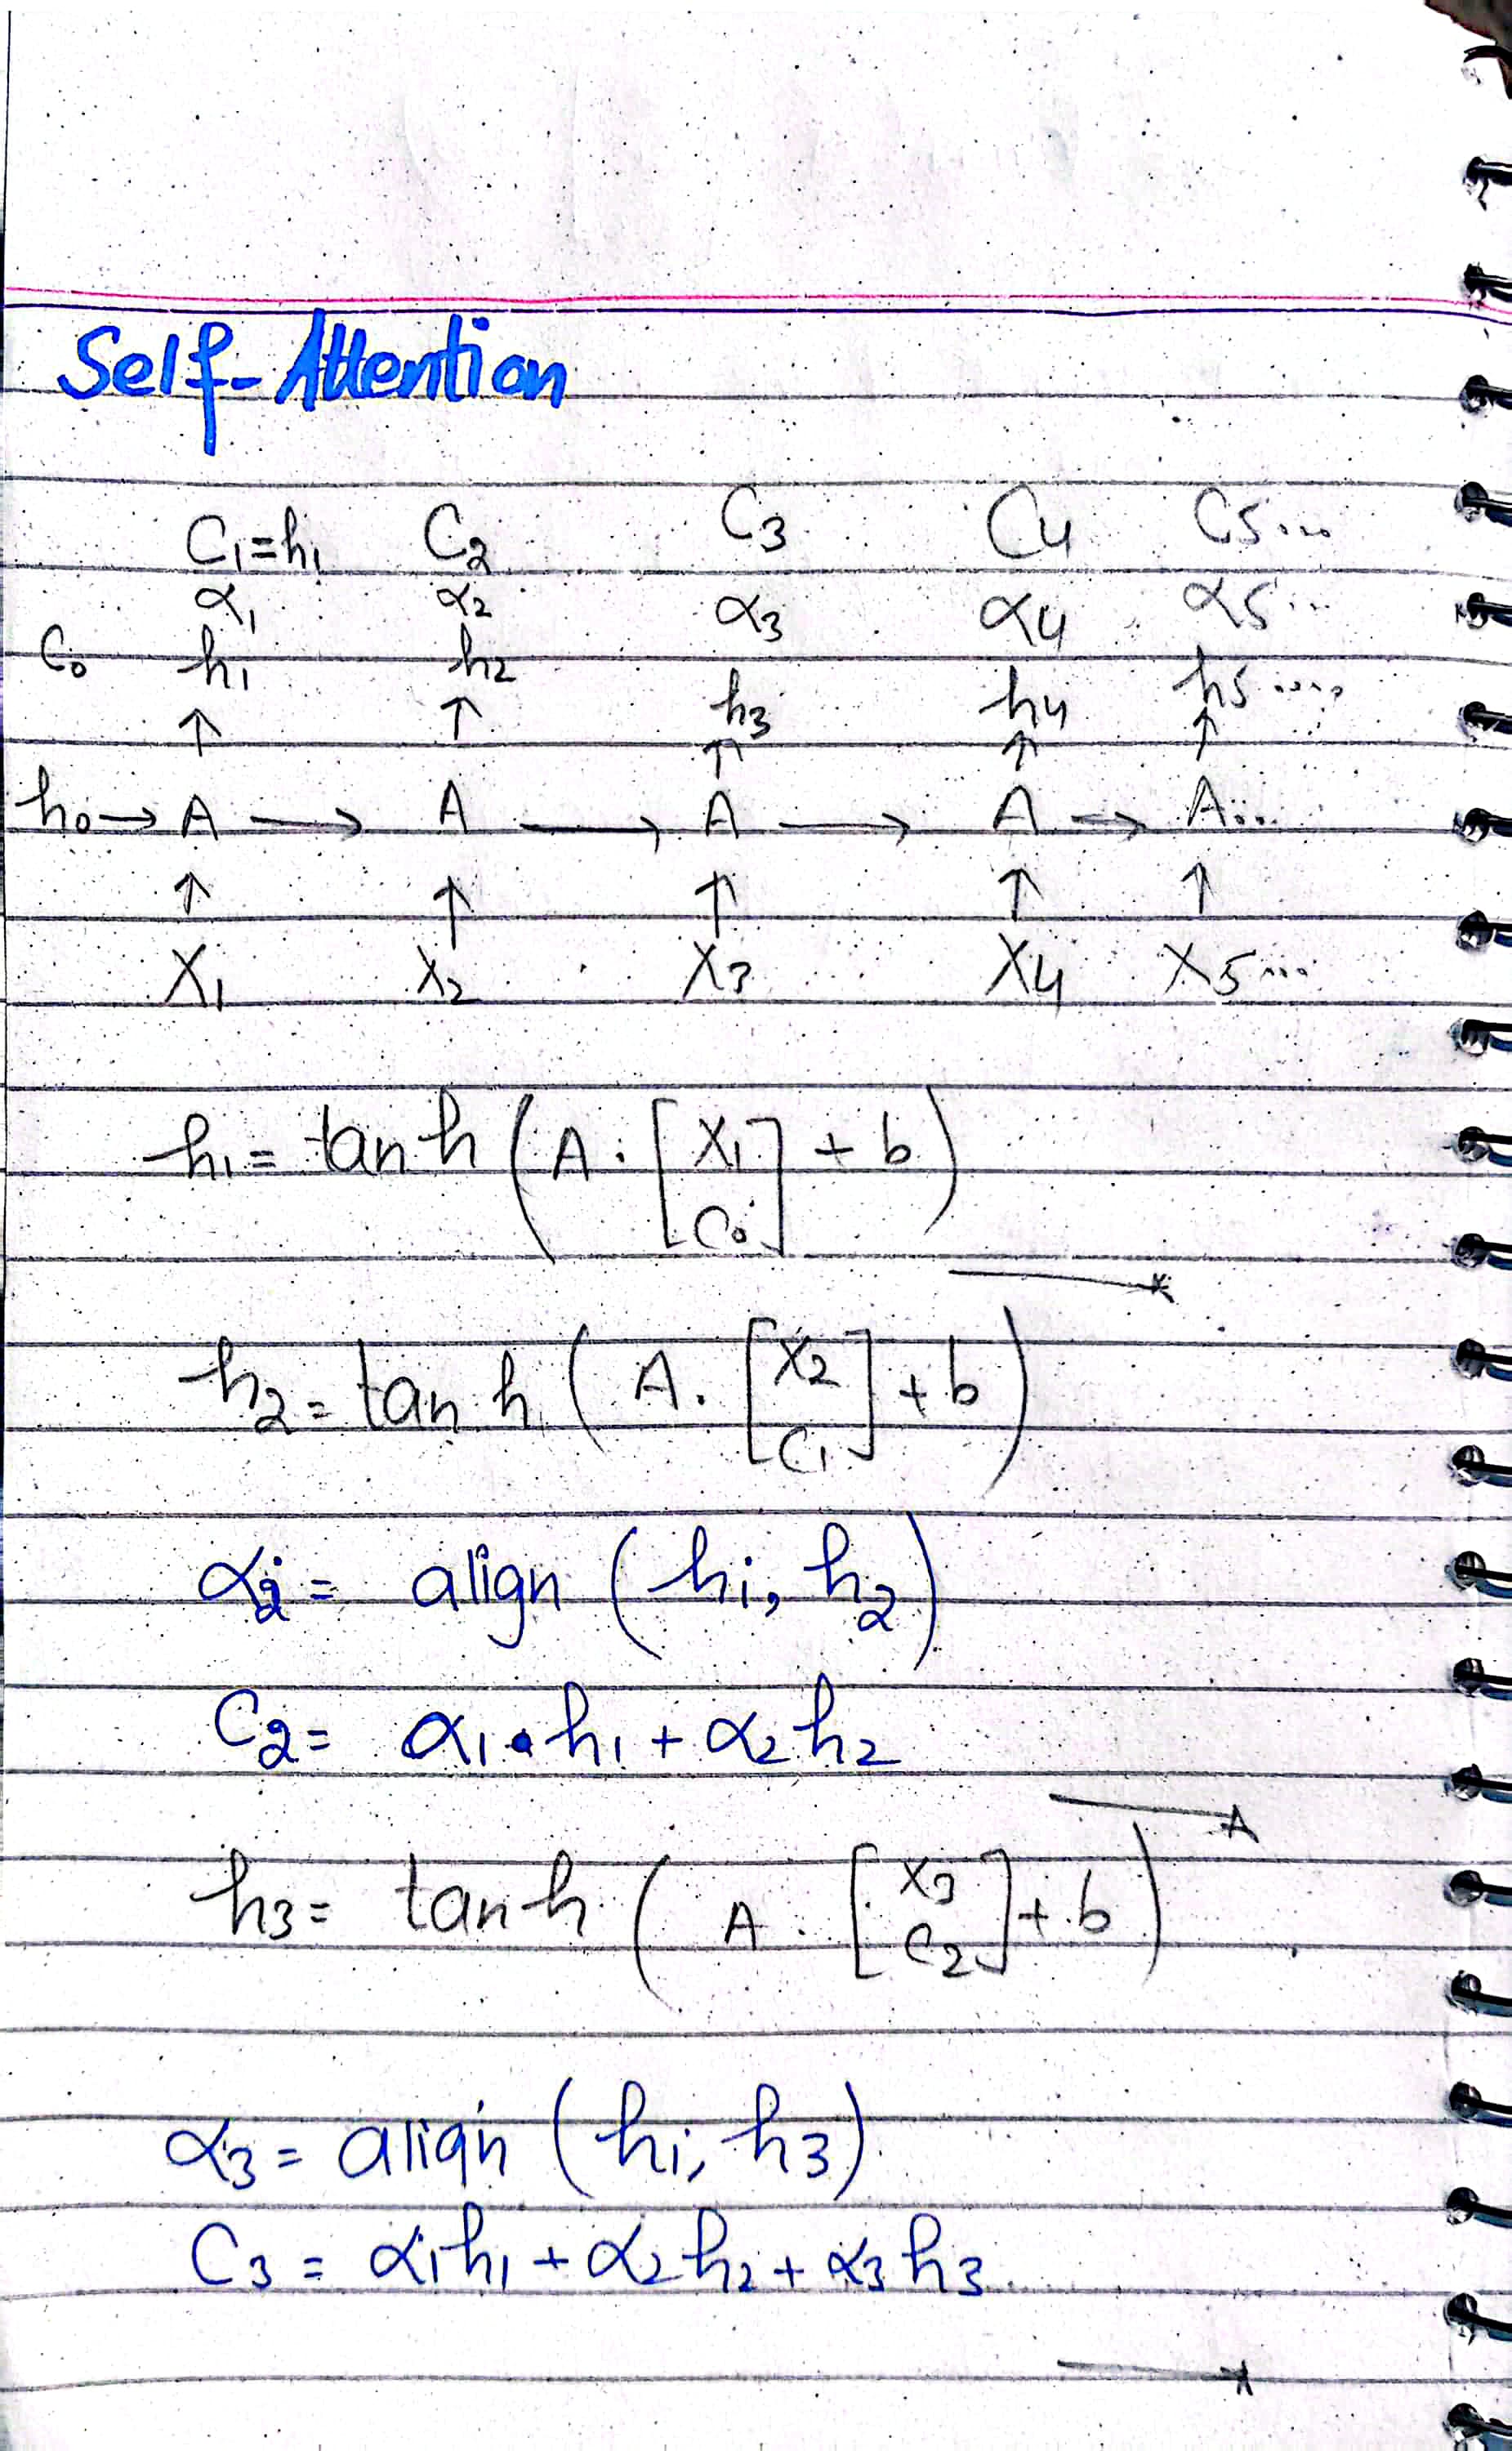 Self-Attention
C₁=h₁ C₂ C₃ C₄ C₅...
α₁ α₂ α₃ α₄ α₅...
C₀ h₁ h₂ h₃ h₄ h₅....
↑ ↑ ↑ ↑ ↑
h₀→ A → A → A → A → A...
↑ ↑ ↑ ↑ ↑
X₁ X₂ X₃ X₄ X₅...
h₁ = tanh (A · [X₁ C₀] + b)
h₂ = tanh (A · [X₂ C₁] + b)
= align (hᵢ, h₂)
C₂ = α₁·h₁ + α₂h₂
h₃ = tanh (A · [X₃ C₂] + b)
α₃ = align (hᵢ, h₃)
C₃ = α₁h₁ + α₂h₂ + α₃h₃